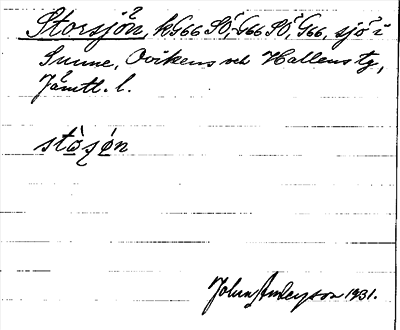 Storsjön, kG66 SÖ, G66 SÖ, G66, sjö i
Sunne, Ovikens och Hallens tg,
Jämtl. l.
stòsjón
John Anderson 1931.